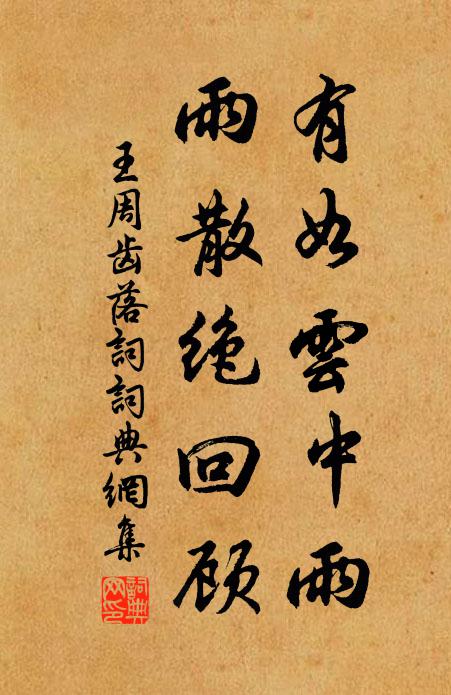 有如雲中雨
雨散絕回顾
王周齿落詞詞典網集
詞典
网印